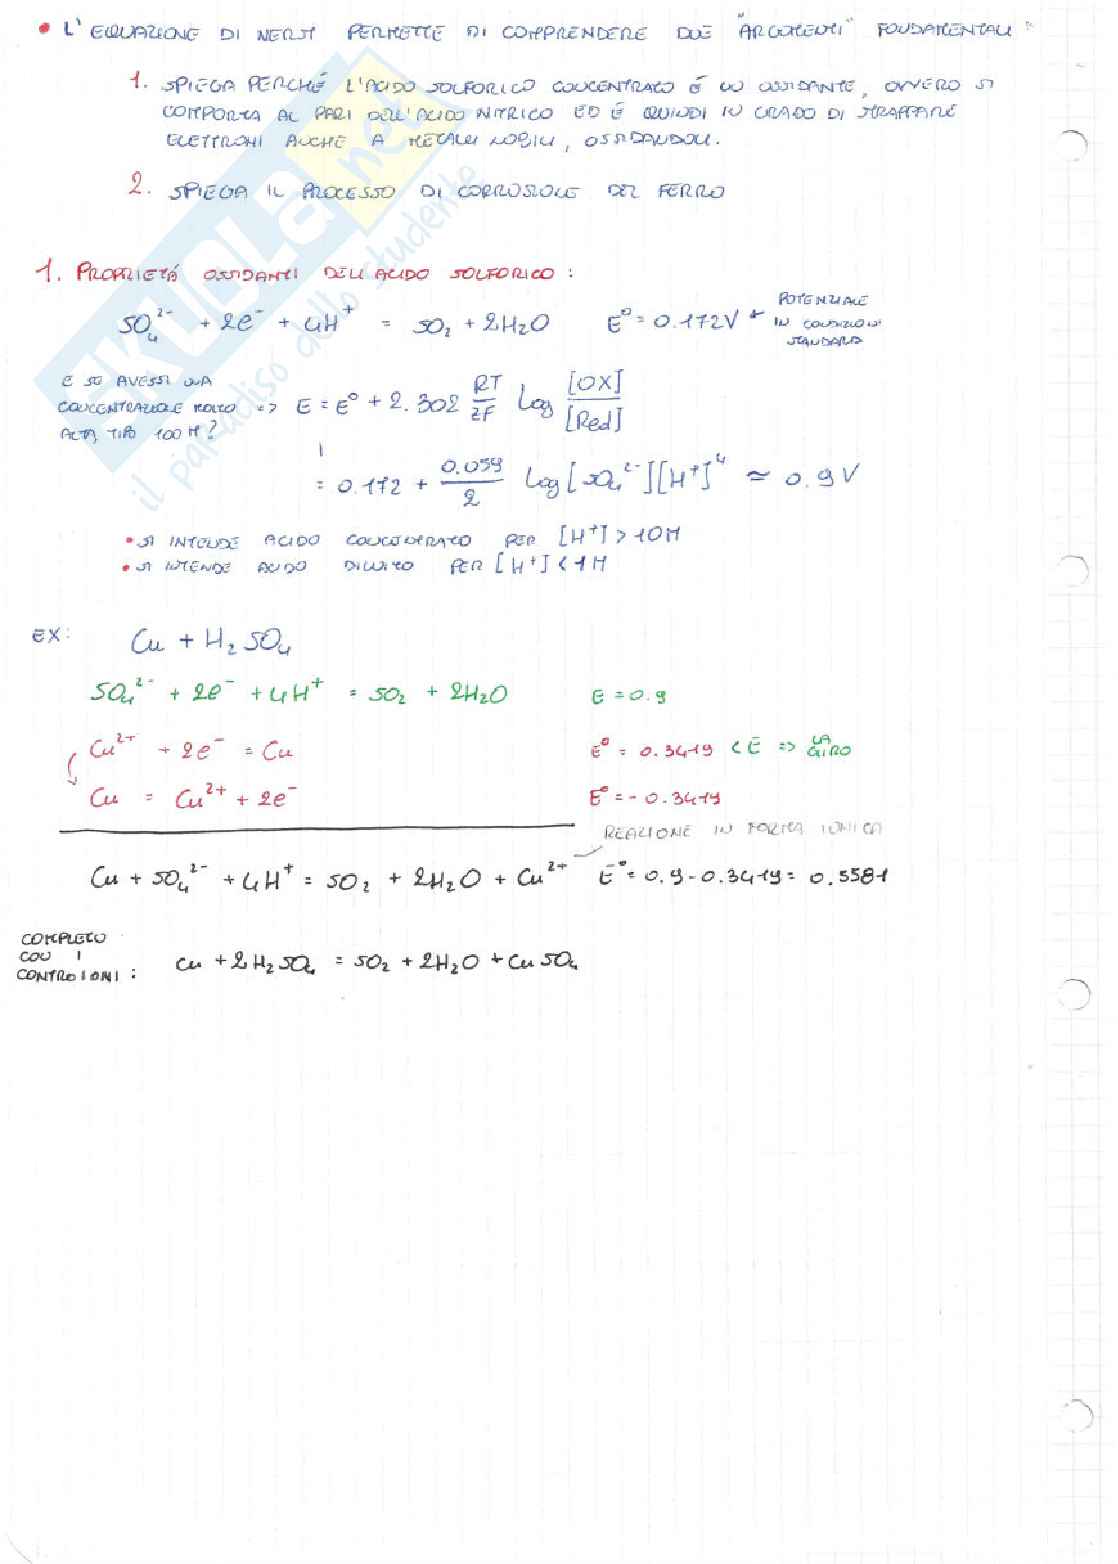 • L'EQUAZIONE DI NERST PERMETTE DI COMPRENDERE DUE "ARGOMENTI" FONDAMENTALI:
1. SPIEGA PERCHÉ L'ACIDO SOLFORICO CONCENTRATO É UN OSSIDANTE, OVVERO SI
COMPORTA AL PARI DELL'ACIDO NITRICO ED É QUINDI IN GRADO DI STRAPPARE
ELETTRONI ANCHE A METALLI NOBILI, OSSIDANDOLI.
2. SPIEGA IL PROCESSO DI CORROSIONE DEL FERRO
SKUOLA.net
il paradiso dello studente
1. PROPRIETÁ OSSIDANTI DELL'ACIDO SOLFORICO:
SO₄²⁻ + 2e⁻ + 4H⁺ = SO₂ + 2H₂O E° = 0.172V ← POTENZIALE
IN CONDIZIONI
STANDARD
E SE AVESSI UNA
CONCENTRAZIONE MOLTO => E = E° + 2.302 RT/zF log [OX]/[Red]
ALTA, TIPO 100M?
= 0.172 + 0.059/2 log[SO₄²⁻][H⁺]⁴ ≃ 0.9V
• SI INTENDE ACIDO CONCENTRATO PER [H⁺] > 10M
• SI INTENDE ACIDO DILUITO PER [H⁺] < 1M
EX: Cu + H₂SO₄
SO₄²⁻ + 2e⁻ + 4H⁺ = SO₂ + 2H₂O E = 0.9
Cu²⁺ + 2e⁻ = Cu E° = 0.3419 < E => LA GIRO
Cu = Cu²⁺ + 2e⁻ E° = -0.3419
REAZIONE IN FORMA IONICA
Cu + SO₄²⁻ + 4H⁺ = SO₂ + 2H₂O + Cu²⁺ E° = 0.9 - 0.3419 = 0.5581
COMPLETO
CON I
CONTROIONI: Cu + 2H₂SO₄ = SO₂ + 2H₂O + CuSO₄